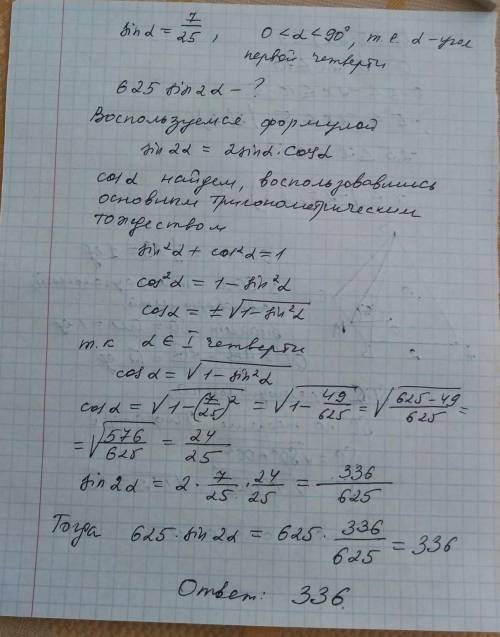 sin α = 7/25 , 0 < α < 90°, т.е. α - угол
первой четверти
625 sin 2α - ?
Воспользуемся формулой
sin 2α = 2 sin α · cos α
cos α найдем, воспользовавшись
основным тригонометрическим
тождеством
sin²α + cos²α = 1
cos²α = 1 - sin²α
cos α = ± √(1 - sin²α)
т.к α ∈ I четверти
cos α = √(1 - sin²α)
cos α = √(1 - (7/25)²) = √(1 - 49/625) = √((625 - 49)/625) =
= √(576/625) = 24/25
sin 2α = 2 · 7/25 · 24/25 = 336/625
Тогда 625 · sin 2α = 625 · 336/625 = 336
Ответ: 336.